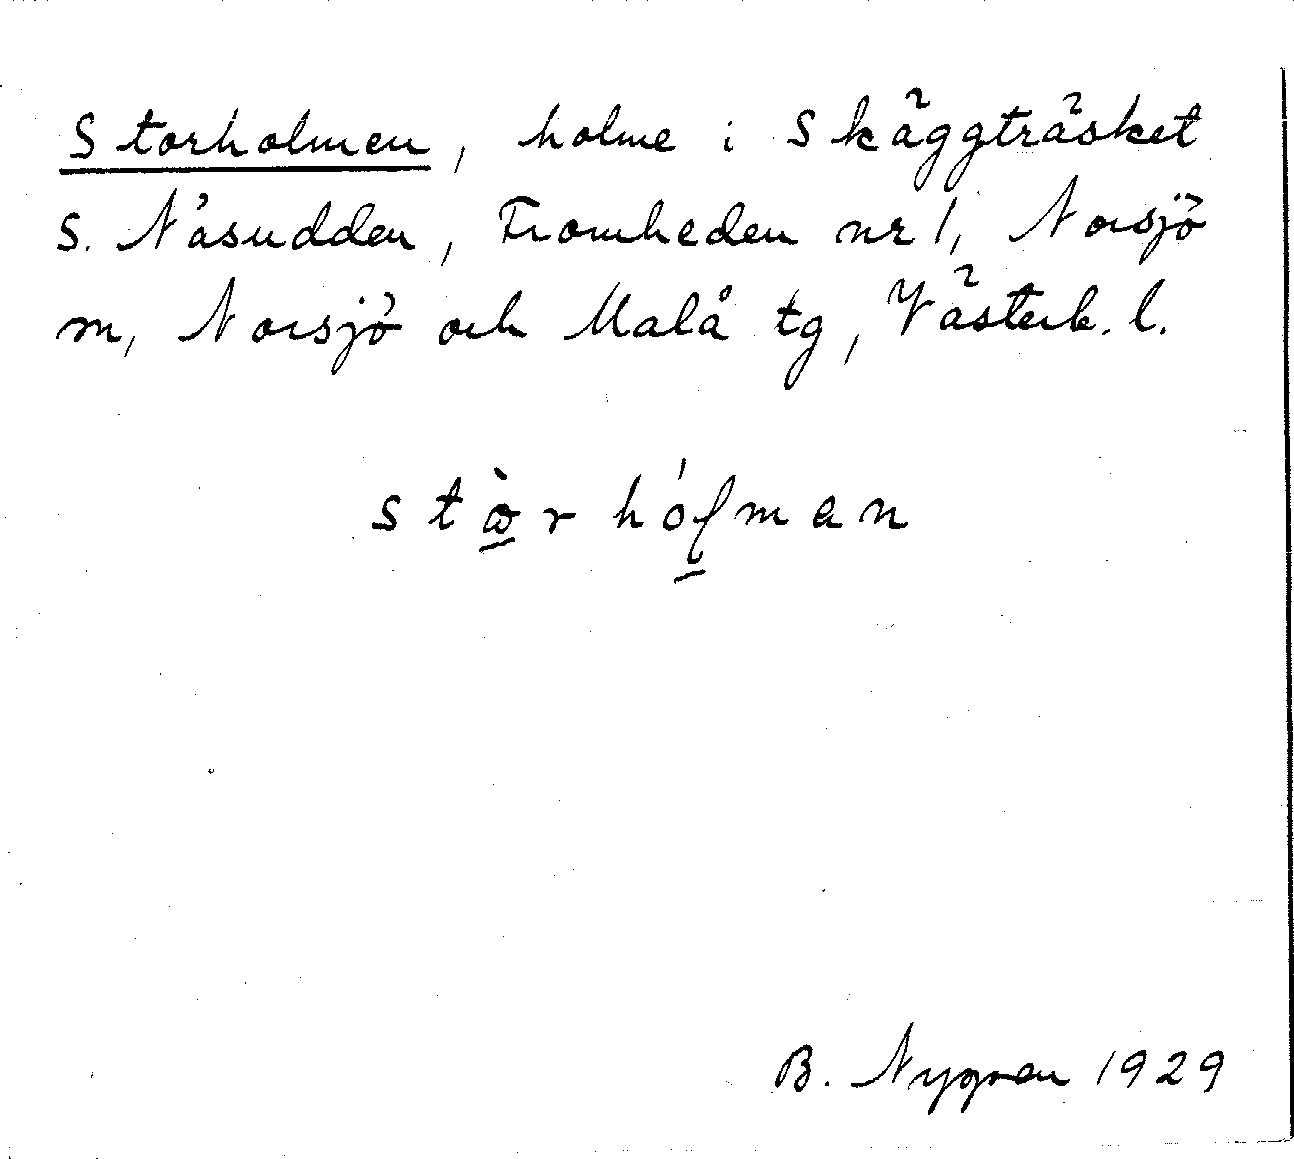 Storholmen, holme i Skäggträsket
s. Näsudden, Fromheden nr 1, Norsjö
m, Norsjö och Malå tg, Västerb. l.
stὼ̲rhól̲man
B. Nygren 1929